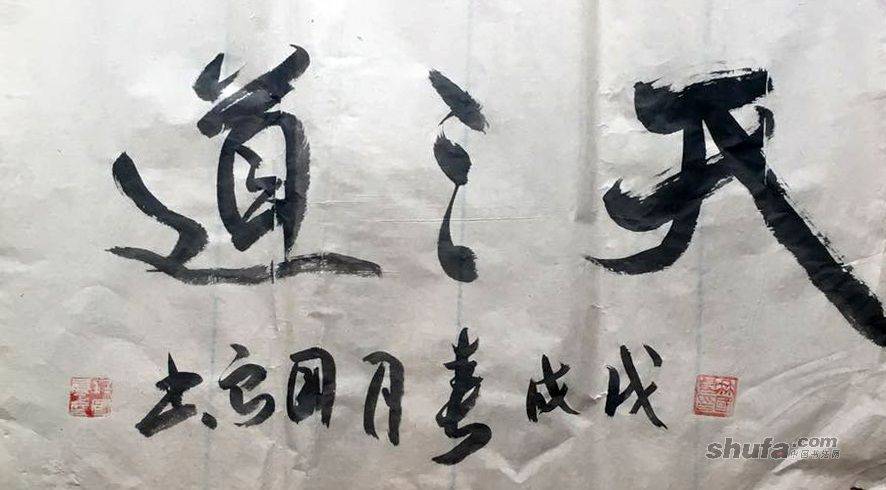 天之道
戊戌春月国书
shufa.com
中国书法网